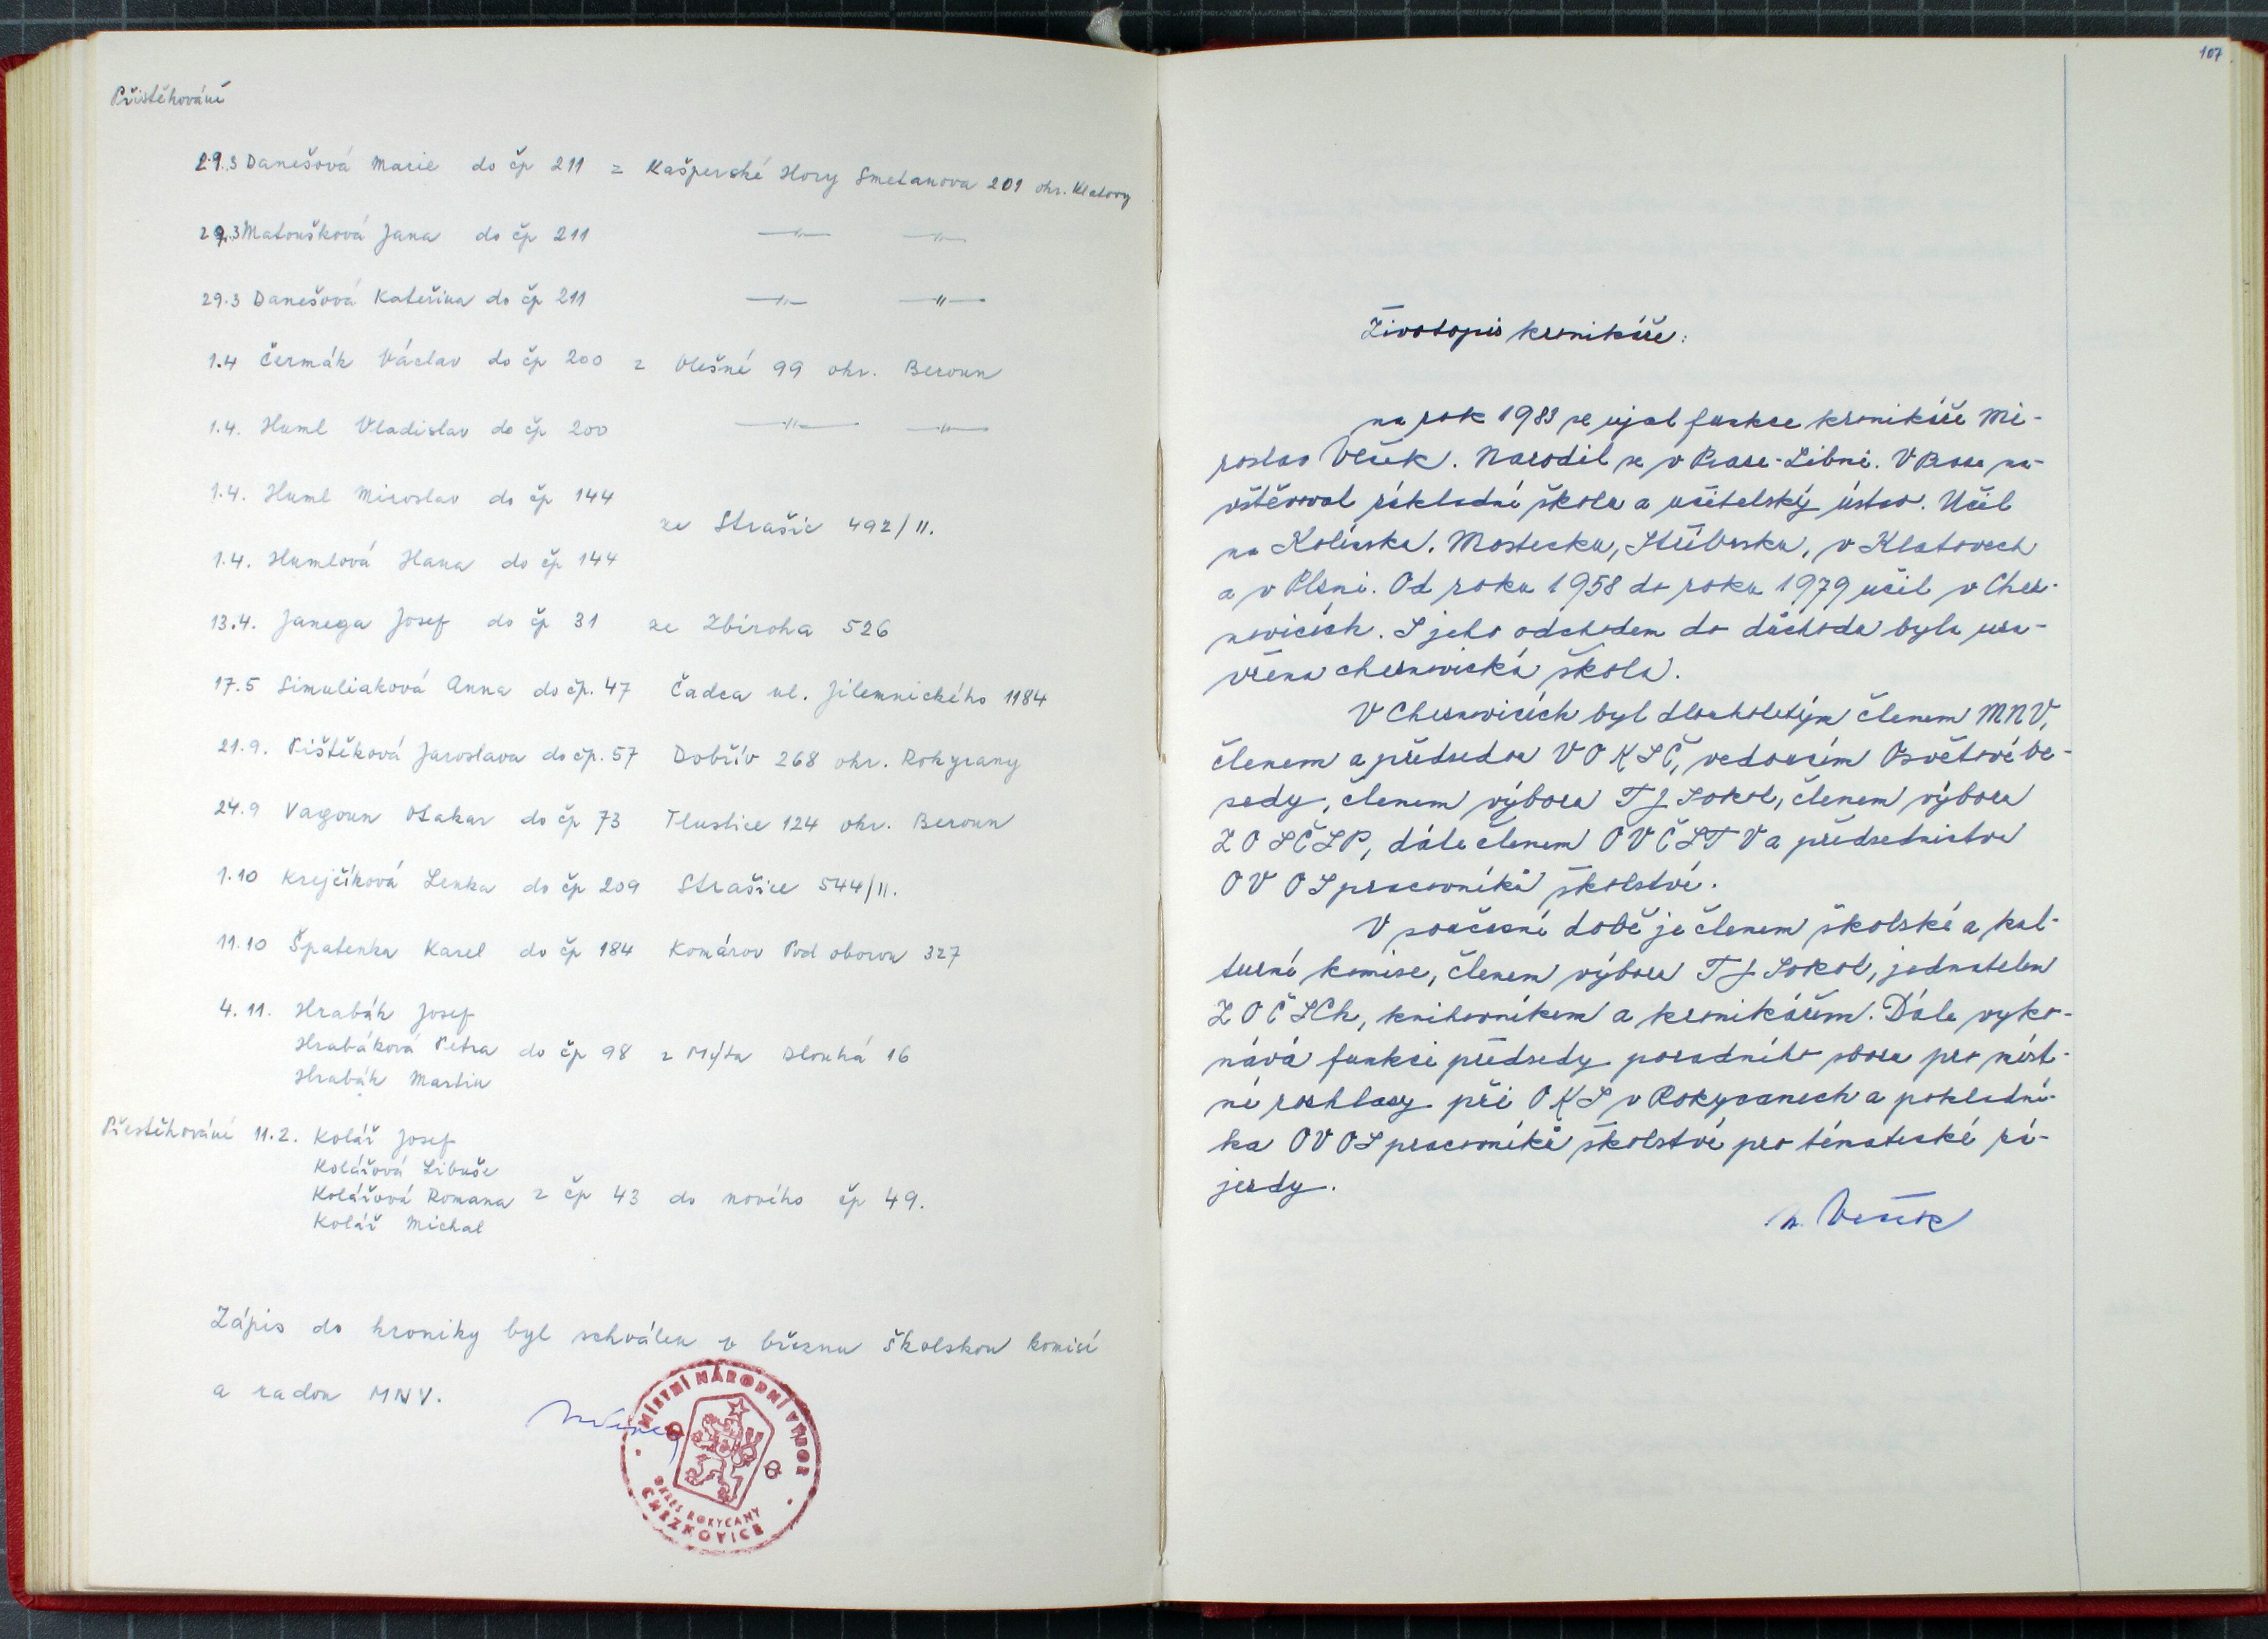 Přistěhování
29.3 Danešová Marie do čp 211 z Kašperské Hory Smetanova 201 okr. Klatovy
29.3 Matoušková Jana do čp 211 —〃— —〃—
29.3 Danešová Kateřina do čp 211 —〃— —〃—
1.4 Čermák Václav do čp 200 z Olešné 99 okr. Beroun
1.4. Huml Vladislav do čp 200 —〃— —〃—
1.4. Huml Miroslav do čp 144
ze Strašic 492/II.
1.4. Humlová Hana do čp 144
13.4. Janega Josef do čp 31 ze Zbiroha 526
17.5 Simuliaková Anna do čp. 47 Čadca ul. Jilemnického 1184
21.9. Pištěková Jaroslava do čp. 57 Dobřív 268 okr. Rokycany
24.9 Vagoun Otakar do čp 73 Tlustice 124 okr. Beroun
1.10 Krejčíková Lenka do čp 209 Strašice 544/II.
11.10 Špatenka Karel do čp 184 Komárov Pod oborou 327
4.11. Hrabák Josef
Hrabáková Petra do čp 98 z Mýta Dlouhá 16
Hrabák Martin
Přestěhování 11.2. Kolář Josef
Kolářová Libuše
Kolářová Romana z čp 43 do nového čp 49.
Kolář Michal
Zápis do kroniky byl schválen v březnu školskou komisí
a radou MNV.
MÍSTNÍ NÁRODNÍ VÝBOR
OKRES ROKYCANY
CHEZNOVICE
107
Životopis kronikáře:
na rok 1983 se ujal funkce kronikáře Mi-
roslav Vlček. Narodil se v Praze-Libni. V Praze na-
vštěvoval základní školu a učitelský ústav. Učil
na Kolínsku, Mostecku, Stříbrsku, v Klatovech
a v Plzni. Od roku 1958 do roku 1979 učil v Chez-
novicích. S jeho odchodem do důchodu byla uza-
vřena cheznovická škola.
V Cheznovicích byl dlouholetým členem MNV,
členem a předsedou VO KSČ, vedoucím Osvětové be-
sedy, členem výboru TJ Sokol, členem výboru
ZO SČSP, dále členem OV ČSTV a předsednictva
OV OS pracovníků školství.
V současné době je členem školské a kul-
turní komise, členem výboru TJ Sokol, jednatelem
ZO ČSCh, knihovníkem a kronikářem. Dále vyko-
nává funkci předsedy poradního sboru pro míst-
ní rozhlasy při OKS v Rokycanech a pokladní-
ka OV OS pracovníků školství pro tématické zá-
jezdy.
M. Vlček